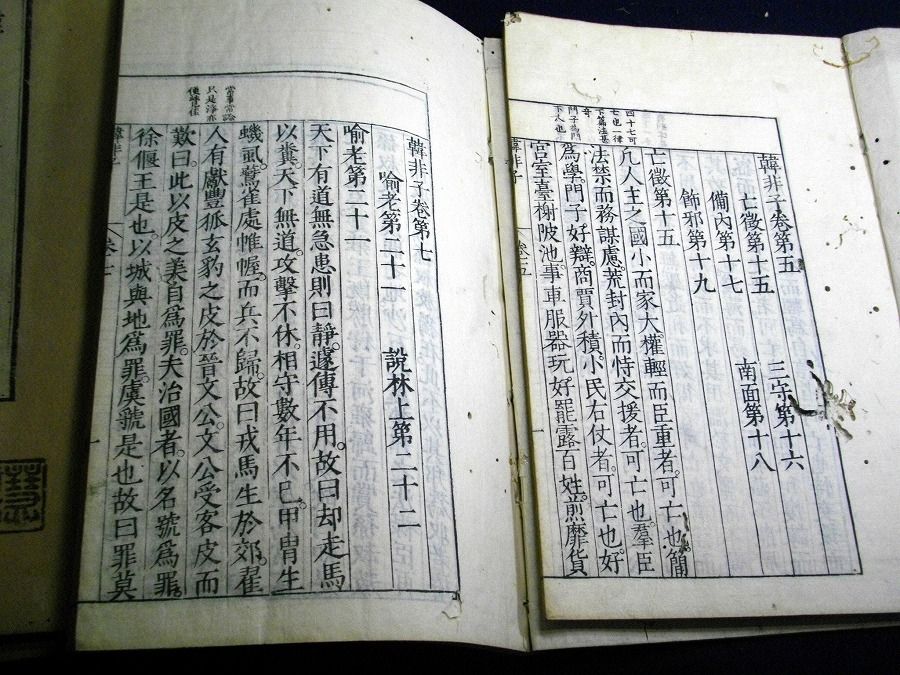 韓非子卷第五
亡徵第十五　三守第十六
備內第十七　南面第十八
飾邪第十九
亡徵第十五
凡人主之國小而家大權輕而臣重者。可亡也。簡
法禁而務謀慮。荒封內而恃交援者。可亡也。羣臣
爲學。門子好辯。商賈外積。小民右仗者。可亡也。好
宮室臺榭陂池。事車服器玩好。罷露百姓。煎靡貨
四十七可
奇
韓非子　卷五
韓非子卷第七
喻老第二十一　說林上第二十二
喻老第二十一
天下有道無急患則曰靜。遽傳不用。故曰却走馬
以糞。天下無道。攻擊不休。相守數年不已。甲胄生
蟣虱。鷰雀處帷幄。而兵不歸。故曰戎馬生於郊。翟
人有獻豐狐玄豹之皮於晉文公。文公受客皮而
歎曰。此以皮之美自爲罪。夫治國者。以名號爲罪。
徐偃王是也以城與地爲罪。虞虢是也故曰罪莫
韓非子　卷七
一